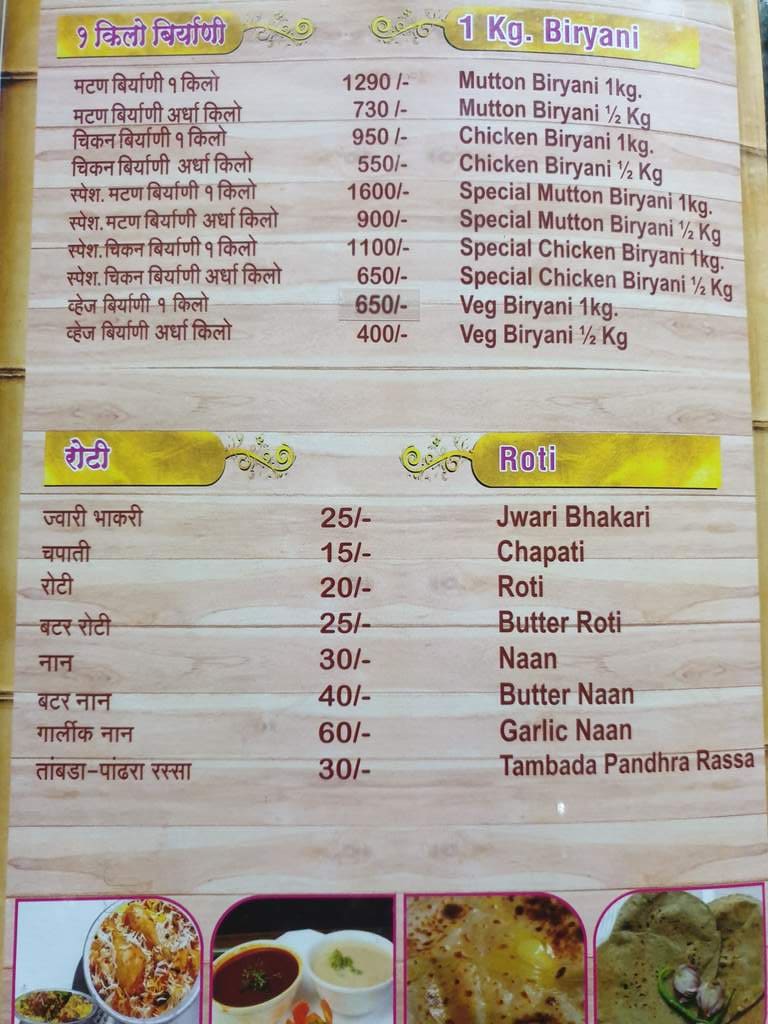 १ किलो बिर्याणी 1 Kg. Biryani
मटण बिर्याणी १ किलो 1290 /- Mutton Biryani 1kg.
मटण बिर्याणी अर्धा किलो 730 /- Mutton Biryani ½ Kg
चिकन बिर्याणी १ किलो 950 /- Chicken Biryani 1kg.
चिकन बिर्याणी अर्धा किलो 550/- Chicken Biryani ½ Kg
स्पेश. मटण बिर्याणी १ किलो 1600/- Special Mutton Biryani 1kg.
स्पेश. मटण बिर्याणी अर्धा किलो 900/- Special Mutton Biryani ½ Kg
स्पेश. चिकन बिर्याणी १ किलो 1100/- Special Chicken Biryani 1kg.
स्पेश. चिकन बिर्याणी अर्धा किलो 650/- Special Chicken Biryani ½ Kg
व्हेज बिर्याणी १ किलो 650/- Veg Biryani 1kg.
व्हेज बिर्याणी अर्धा किलो 400/- Veg Biryani ½ Kg
रोटी Roti
ज्वारी भाकरी 25/- Jwari Bhakari
चपाती 15/- Chapati
रोटी 20/- Roti
बटर रोटी 25/- Butter Roti
नान 30/- Naan
बटर नान 40/- Butter Naan
गार्लीक नान 60/- Garlic Naan
तांबडा-पांढरा रस्सा 30/- Tambada Pandhra Rassa